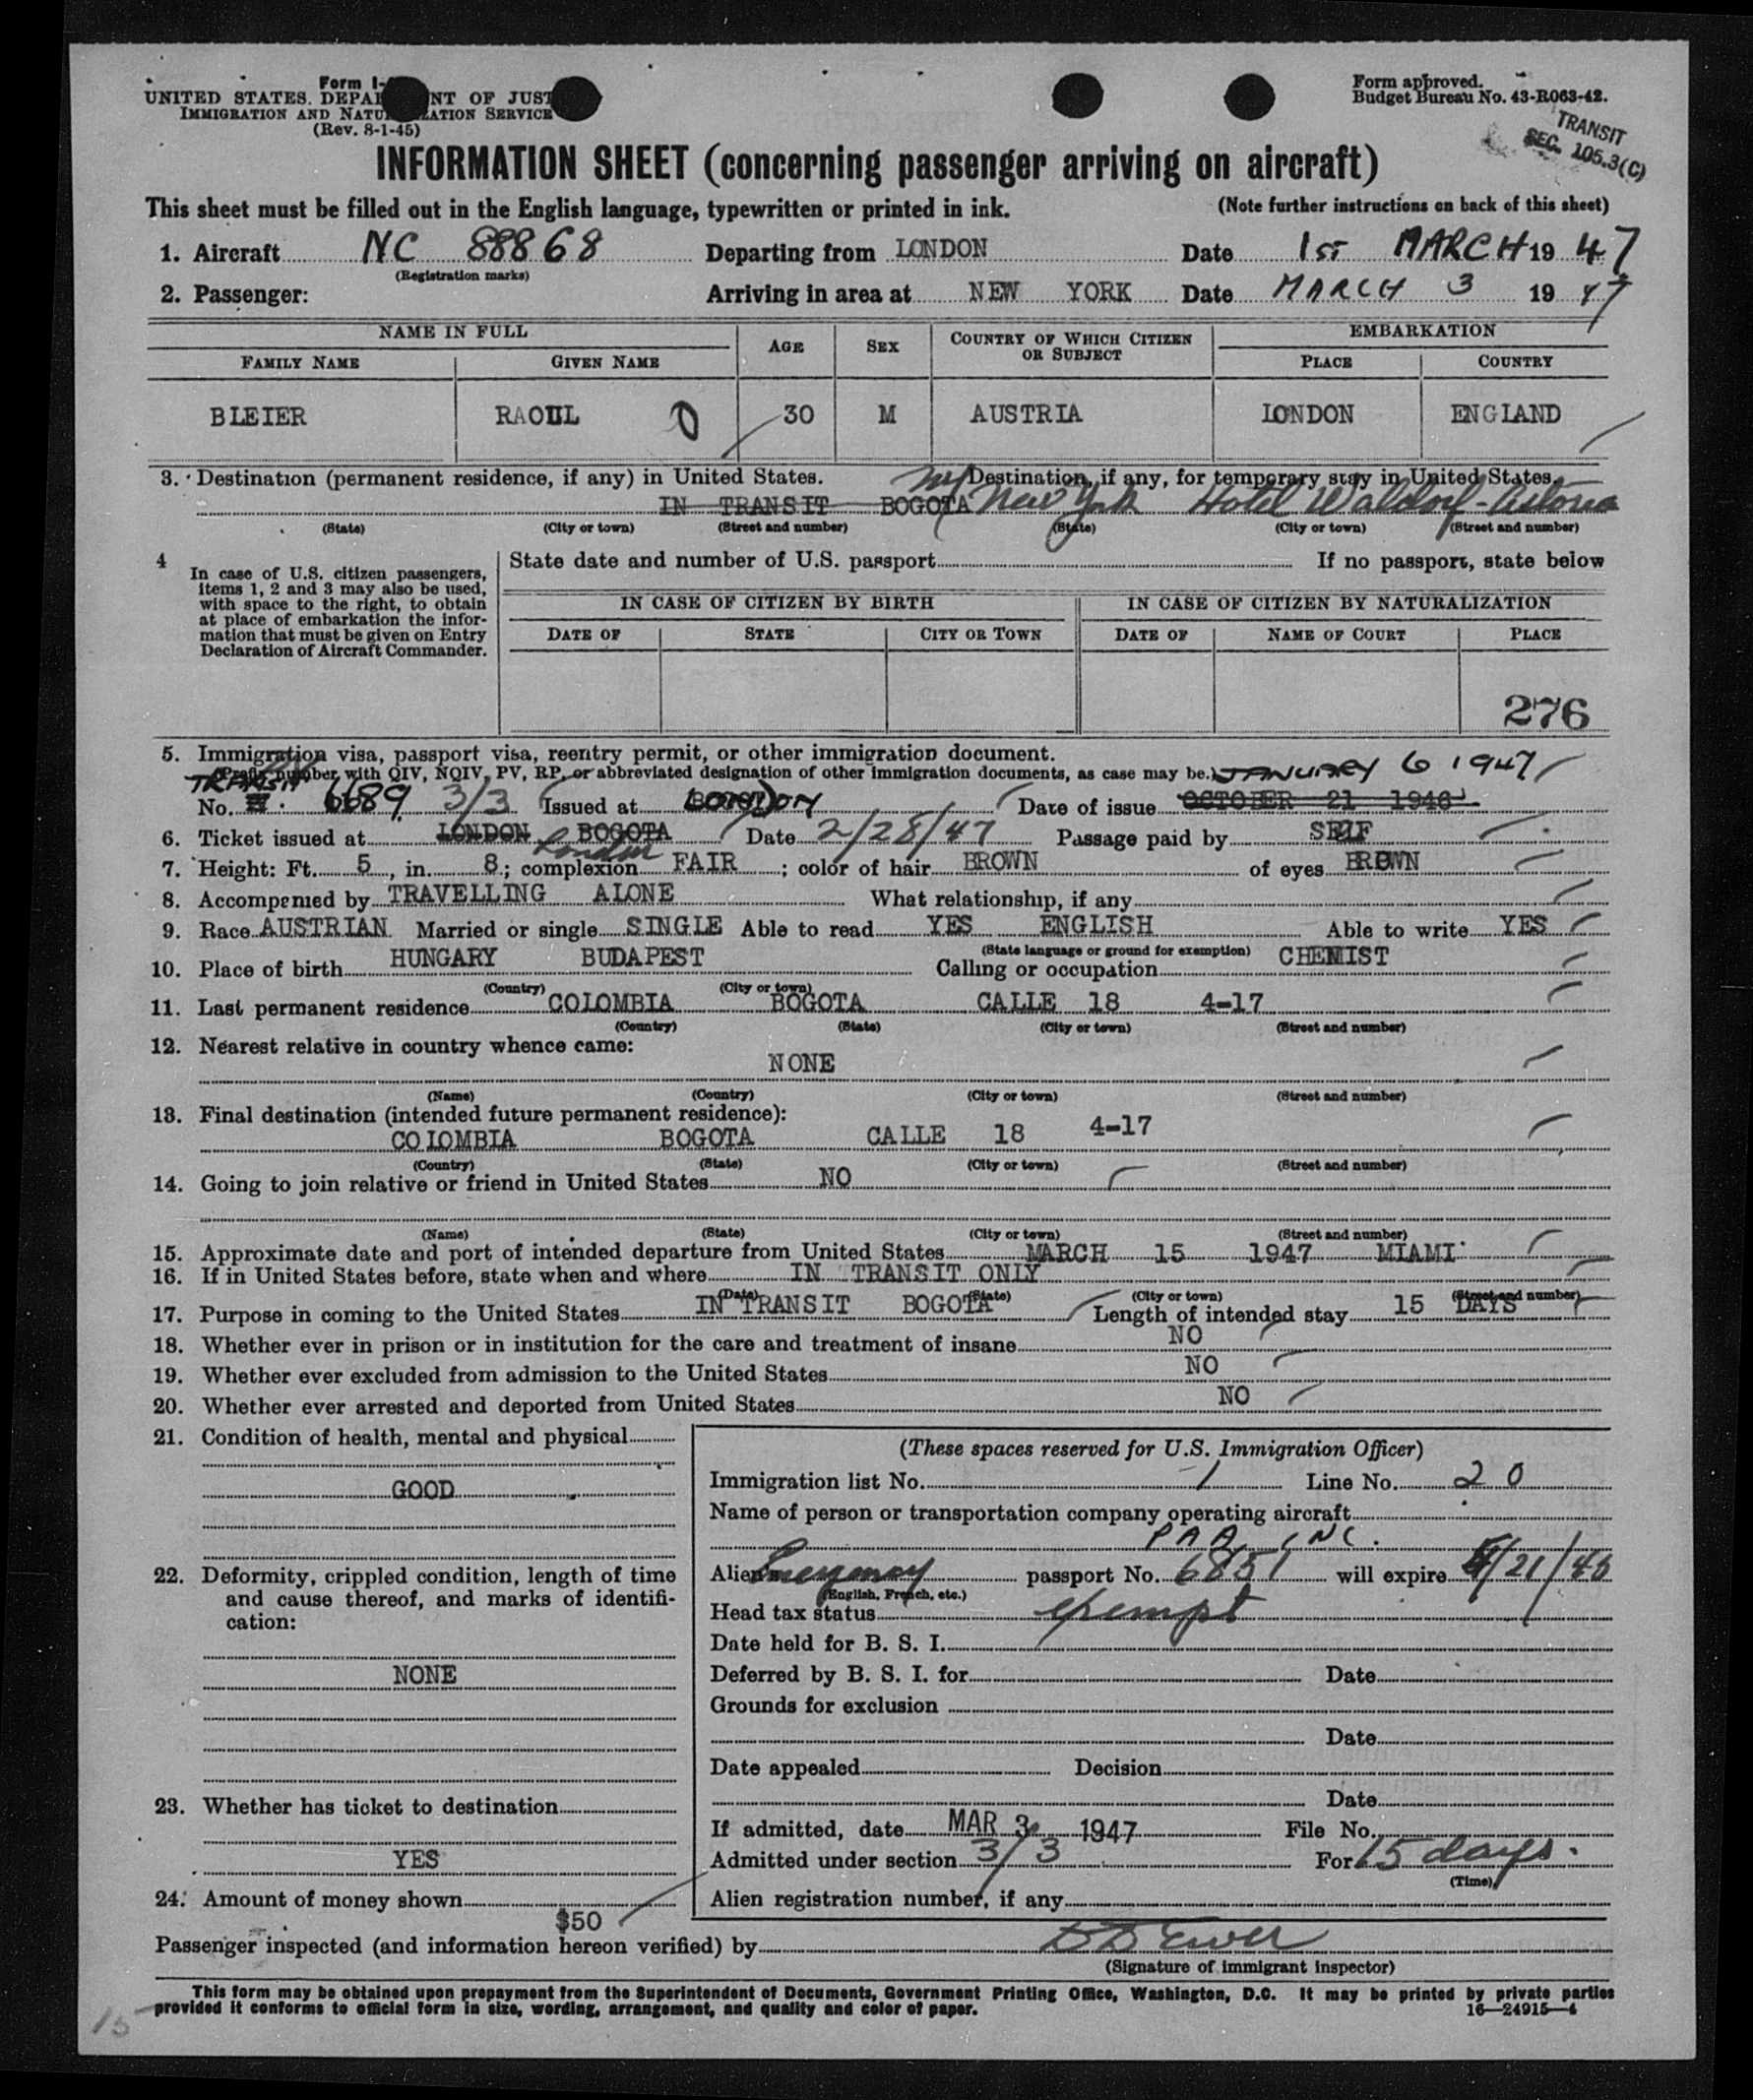 Form I-
UNITED STATES DEPARTMENT OF JUSTICE
IMMIGRATION AND NATURALIZATION SERVICE
(Rev. 8-1-45)
Form approved.
Budget Bureau No. 43-R063-42.
TRANSIT
SEC. 105.3(C)
INFORMATION SHEET (concerning passenger arriving on aircraft)
This sheet must be filled out in the English language, typewritten or printed in ink. (Note further instructions on back of this sheet)
1. Aircraft NC 88868 Departing from LONDON Date 1ST MARCH 19 47
(Registration marks)
2. Passenger: Arriving in area at NEW YORK Date MARCH 3 19 47
NAME IN FULL AGE SEX COUNTRY OF WHICH CITIZEN OR SUBJECT EMBARKATION
FAMILY NAME GIVEN NAME PLACE COUNTRY
BLEIER RAOUL 0 30 M AUSTRIA LONDON ENGLAND
3. Destination (permanent residence, if any) in United States. Destination, if any, for temporary stay in United States.
IN TRANSIT BOGOTA NY New York Hotel Waldorf-Astoria
(State) (City or town) (Street and number) (State) (City or town) (Street and number)
4 In case of U.S. citizen passengers, items 1, 2 and 3 may also be used, with space to the right, to obtain at place of embarkation the information that must be given on Entry Declaration of Aircraft Commander.
State date and number of U.S. passport If no passport, state below
IN CASE OF CITIZEN BY BIRTH IN CASE OF CITIZEN BY NATURALIZATION
DATE OF STATE CITY OR TOWN DATE OF NAME OF COURT PLACE
276
5. Immigration visa, passport visa, reentry permit, or other immigration document.
(Prefix number with QIV, NQIV, PV, RP, or abbreviated designation of other immigration documents, as case may be.) JANUARY 6 1947
TRANSIT
No. 6689 3/3 Issued at LONDON Date of issue OCTOBER 21 1946
6. Ticket issued at LONDON BOGOTA London Date 2/28/47 Passage paid by SELF
7. Height: Ft. 5, in. 8; complexion FAIR; color of hair BROWN of eyes BROWN
8. Accompanied by TRAVELLING ALONE What relationship, if any
9. Race AUSTRIAN Married or single SINGLE Able to read YES ENGLISH Able to write YES
(State language or ground for exemption)
10. Place of birth HUNGARY BUDAPEST Calling or occupation CHEMIST
(Country) (City or town)
11. Last permanent residence COLOMBIA BOGOTA CALLE 18 4-17
(Country) (State) (City or town) (Street and number)
12. Nearest relative in country whence came:
NONE
(Name) (Country) (City or town) (Street and number)
13. Final destination (intended future permanent residence):
COLOMBIA BOGOTA CALLE 18 4-17
(Country) (State) (City or town) (Street and number)
14. Going to join relative or friend in United States NO
(Name) (State) (City or town) (Street and number)
15. Approximate date and port of intended departure from United States MARCH 15 1947 MIAMI
16. If in United States before, state when and where IN TRANSIT ONLY
(Date) (State) (City or town) (Street and number)
17. Purpose in coming to the United States IN TRANSIT BOGOTA Length of intended stay 15 DAYS
18. Whether ever in prison or in institution for the care and treatment of insane NO
19. Whether ever excluded from admission to the United States NO
20. Whether ever arrested and deported from United States NO
21. Condition of health, mental and physical
GOOD
22. Deformity, crippled condition, length of time
and cause thereof, and marks of identifi-
cation:
NONE
23. Whether has ticket to destination
YES
24. Amount of money shown
$50
(These spaces reserved for U.S. Immigration Officer)
Immigration list No. 1 Line No. 20
Name of person or transportation company operating aircraft
PAA, INC.
Alien's passport No. 6851 will expire /21/48
(English, French, etc.)
Head tax status exempt
Date held for B. S. I.
Deferred by B. S. I. for Date
Grounds for exclusion
Date
Date appealed Decision
Date
If admitted, date MAR 3 1947 File No.
Admitted under section 3/3 For 15 days.
(Time)
Alien registration number, if any
Passenger inspected (and information hereon verified) by
(Signature of immigrant inspector)
This form may be obtained upon prepayment from the Superintendent of Documents, Government Printing Office, Washington, D.C. It may be printed by private parties
provided it conforms to official form in size, wording, arrangement, and quality and color of paper. 16—24915-4
15